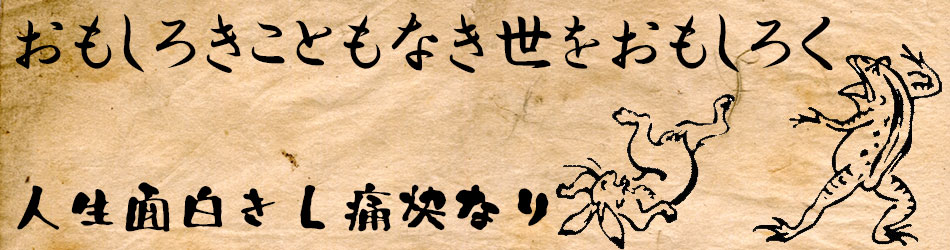 おもしろきこともなき世をおもしろく
人生面白きし痛快なり